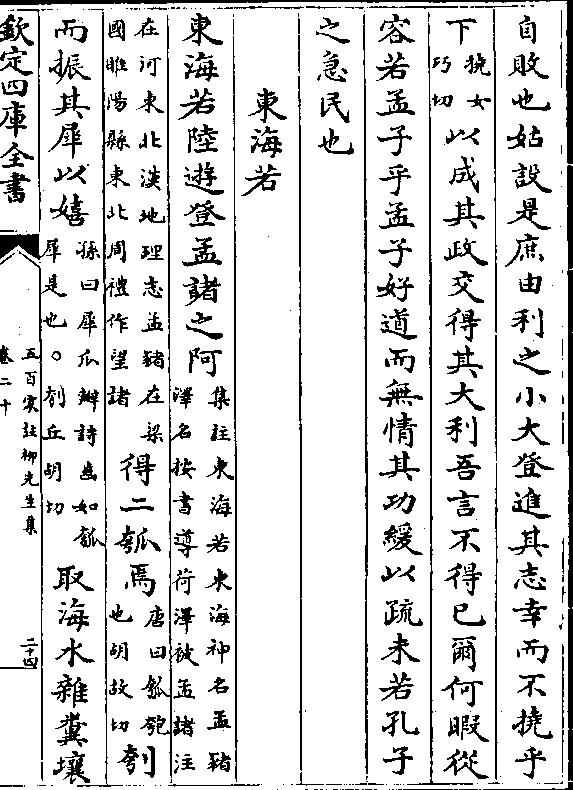 自敗也姑設是庶由利之小大登進其志幸而不撓乎
下撓女巧切以成其政交得其大利吾言不得已爾何暇從
容若孟子乎孟子好道而無情其功緩以疏未若孔子
之急民也
東海若
東海若陸遊登孟諸之阿集註東海若東海神名孟豬澤名按書導荷澤被孟諸注
在河東北漢地理志孟豬在梁國睢陽縣東北周禮作望諸得二瓠焉唐曰瓠匏也胡故切刳
而振其犀以嬉孫曰犀瓜瓣詩齒如瓠犀是也○刳丘胡切取海水雜糞壤
欽定四庫全書
五百家註柳先生集
卷二十
二十四